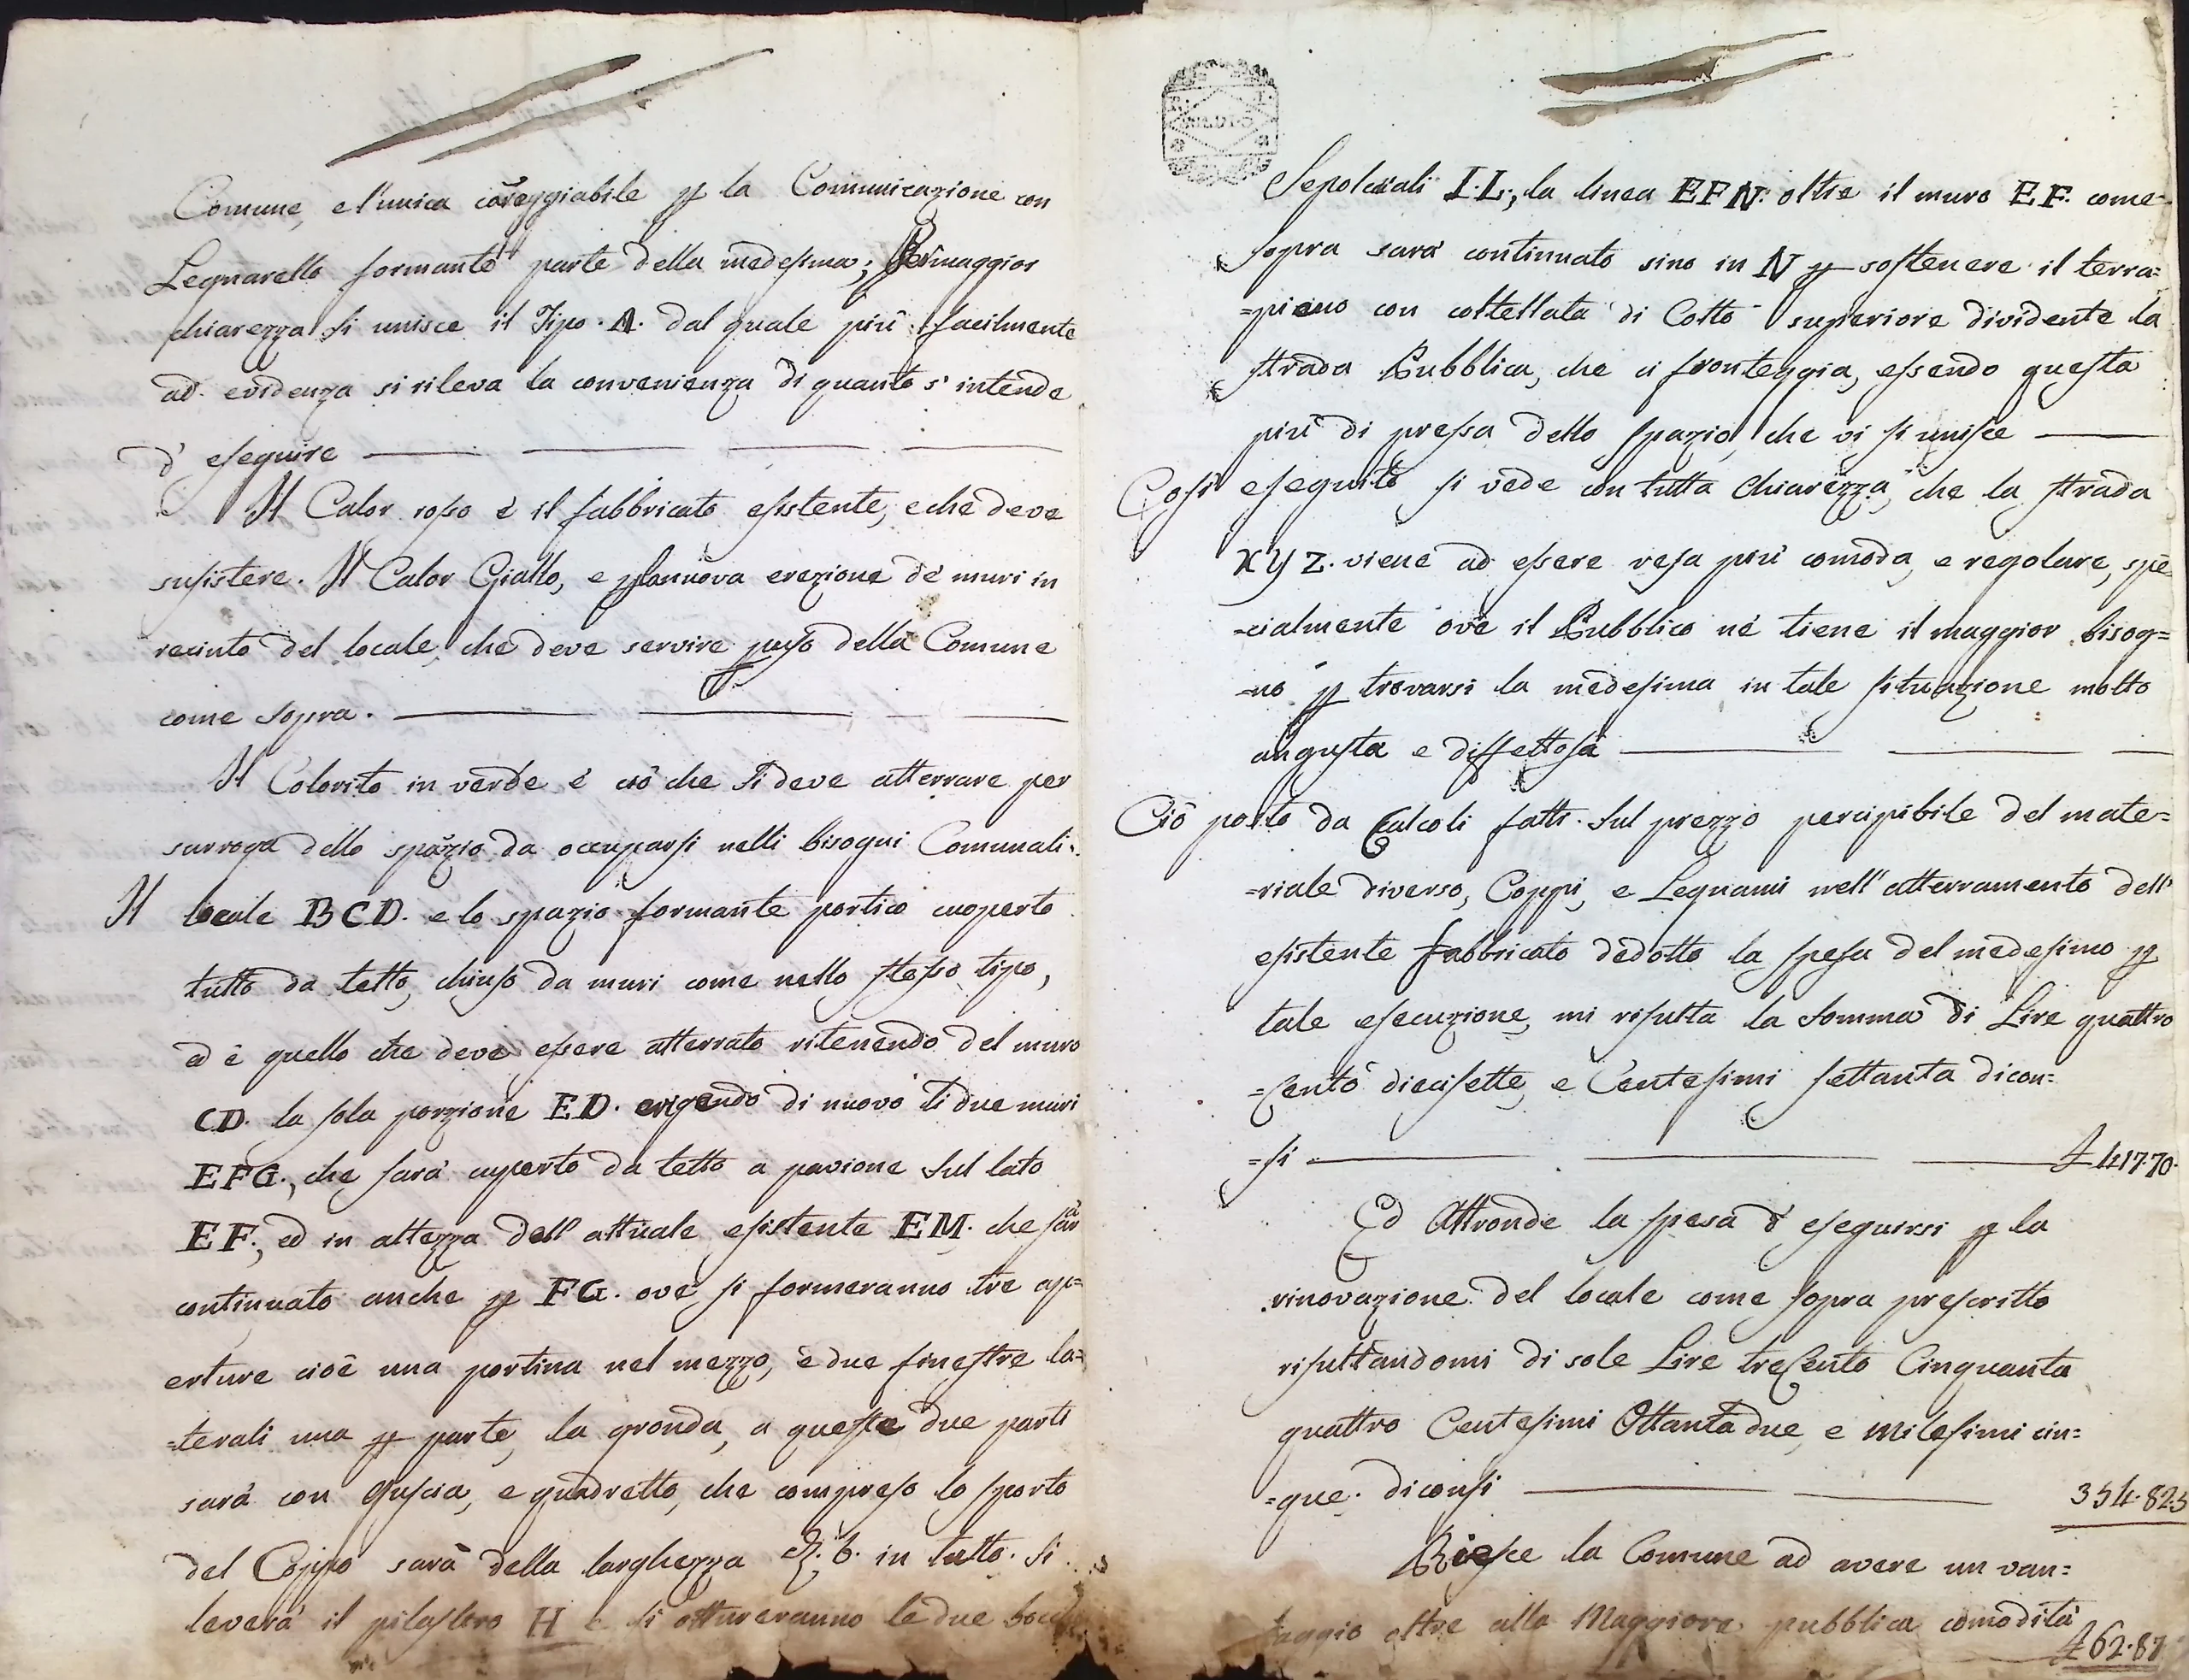 Comune, e l'unica carreggiabile p la Comunicazione con
Legnarello formante parte della medesima; Per maggior
chiarezza si unisce il Tipo. A. dal quale più facilmente
ad evidenza si rileva la convenienza di quanto s'intende
d'eseguire
Il Calor rosso è il fabbricato esistente, e che deve
susistere. Il Calor Giallo, e p la nuova erezione de' muri in
recinto del locale, che deve servire p uso della Comune
come sopra.
Il Colorito in verde è ciò che si deve atterrare per
surroga dello spazio da occuparsi nelli bisogni Comunali.
Il locale BCD. e lo spazio formante portico cuoperto
tutto da tetto, chiuso da muri come nello stesso tipo,
ed è quello che deve essere atterrato ritenendo del muro
CD. la sola porzione ED. erigendo di nuovo li due muri
EFG., che sarà cuperto da tetto a pavione sul lato
EF., ed in altezza dell'attuale esistente EM. che sarà
continuato anche p FG. ove si formeranno tre ap=
erture cioè una portina nel mezzo, e due finestre la=
=terali una p parte, la gronda, a queste due parti
sarà con Guscia, e quadretto, che compreso lo sporto
del Coppo sarà della larghezza 6. in tutto. Si
leverà il pilastro H e si ottureranno le due bocche
Sepolcrali I.L.; la linea EFN. oltre il muro EF. come
sopra sarà continuato sino in N p sostenere il terra=
=pieno con coltellata di Cotto superiore dividente la
strada Pubblica, che ci fronteggia, essendo questa
più di pressa dello spazio, che vi si unisce
Così eseguito si vede con tutta chiarezza, che la strada
XYZ. viene ad essere resa più comoda, e regolare, spe
=cialmente ove il Pubblico nè tiene il maggior bisog=
=no p trovarsi la medesima in tale situazione molto
angusta e diffettosa
Ciò posto da Calcoli fatti sul prezzo percipibile del mate=
=riale diverso, Coppi, e Legnami nell'atterramento dell'
esistente fabbricato dedotto la spesa del medesimo p
tale esecuzione, mi risulta la somma di Lire quattro
=cento diecisette, e Centesimi settanta dicon=
=si £ 417.70.
Ed Altronde la spesa d'eseguirsi p la
rinovazione del locale come sopra prescritto
risultandomi di sole Lire trecento Cinquanta
quattro Centesimi Ottanta due, e milesimi cin=
=que. diconsi 354.825
Riesce la Comune ad avere un van=
taggio oltre alla Maggiore pubblica comodità
£ 62.87